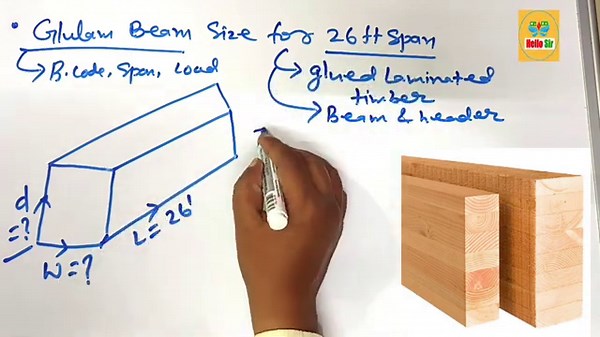 • Glulam Beam Size for 26 ft Span
B. Code, Span, Load
glued Laminated
timber
Beam & header
d
=?
W=?
L=26'
Hello Sir